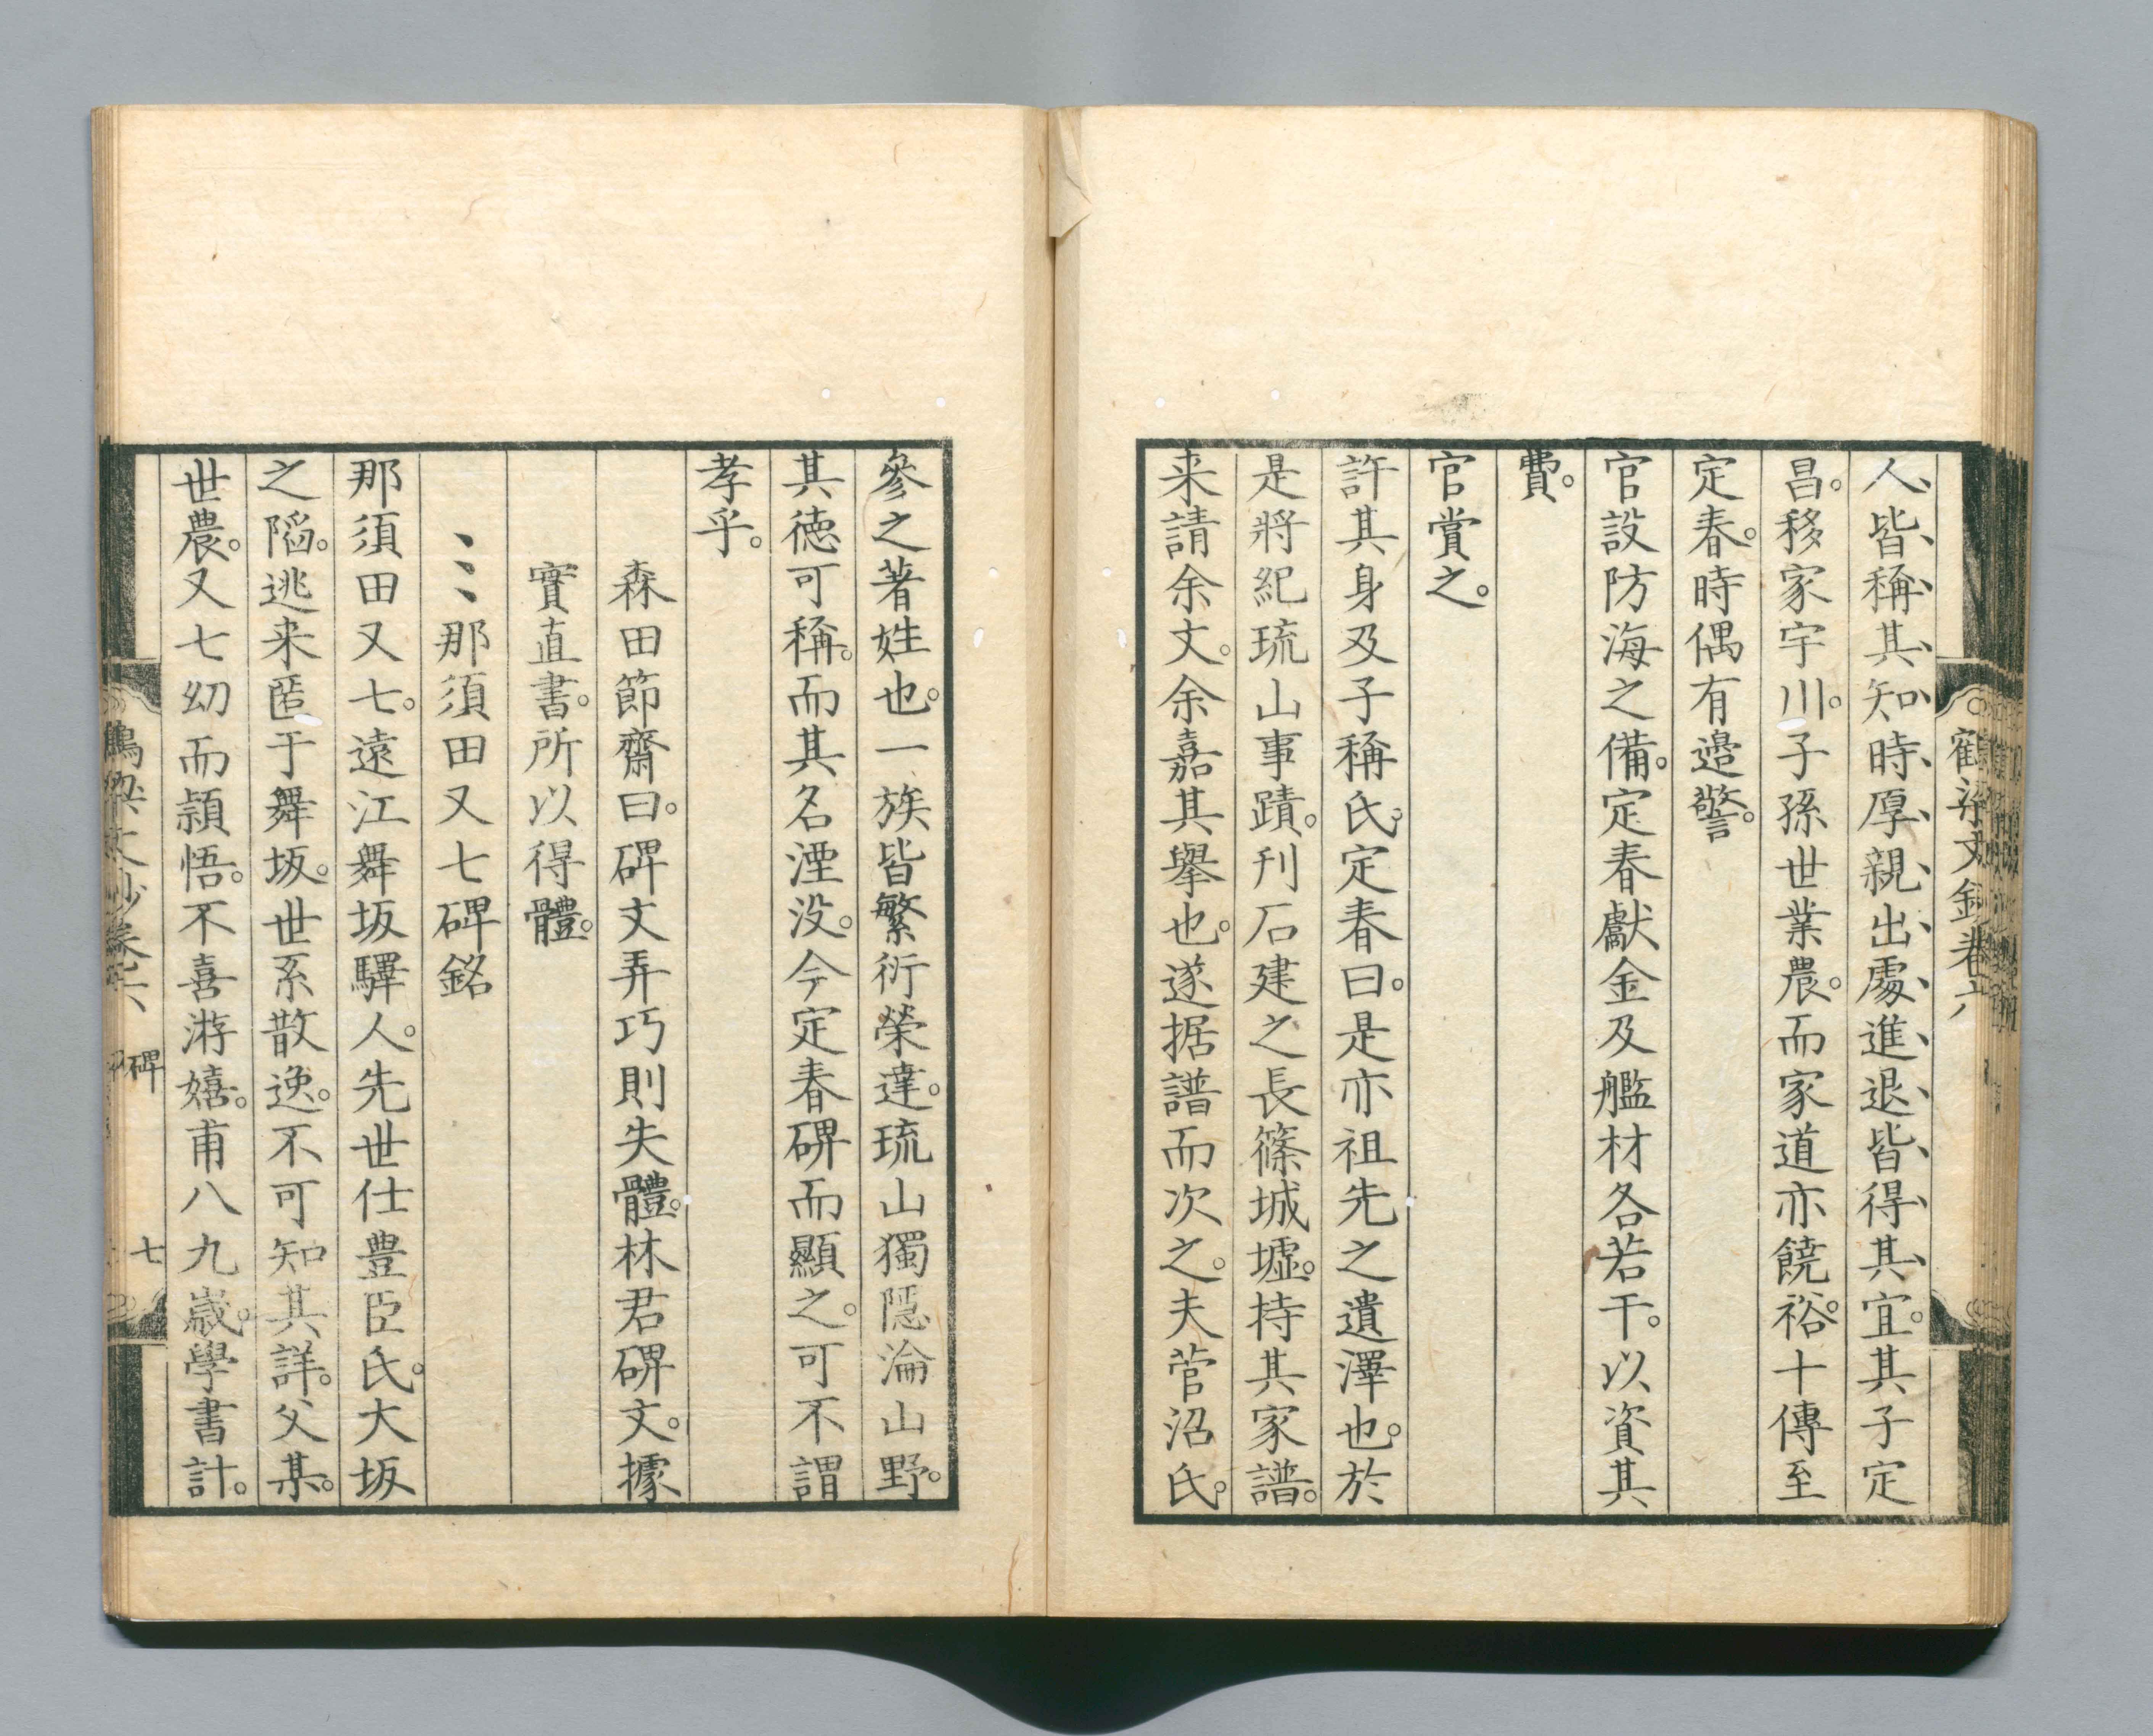 人皆稱其知時厚親出處進退皆得其宜。其子定
昌。移家宇川。子孫世業農。而家道亦饒裕。十傳至
定春。時偶有邊警。
官設防海之備。定春獻金及艦材各若干。以資其
費。
官賞之。
許其身及子稱氏。定春曰。是亦祖先之遺澤也。於
是將紀琉山事蹟。刊石建之長篠城墟。持其家譜。
来請余文。余嘉其舉也。遂据譜而次之。夫菅沼氏。
參之著姓也。一族皆繁衍榮達。琉山獨隱淪山野。
其德可稱。而其名湮没。今定春碑而顯之。可不謂
孝乎。
森田節齋曰。碑文弄巧則失體。林君碑文。據
實直書。所以得體。
那須田又七碑銘
那須田又七。遠江舞坂驛人。先世仕豊臣氏。大坂
之陷。逃来匿于舞坂。世系散逸。不可知其詳。父某。
世農。又七幼而頴悟。不喜游嬉。甫八九歳。學書計。
鶴梁文鈔卷六 碑 七